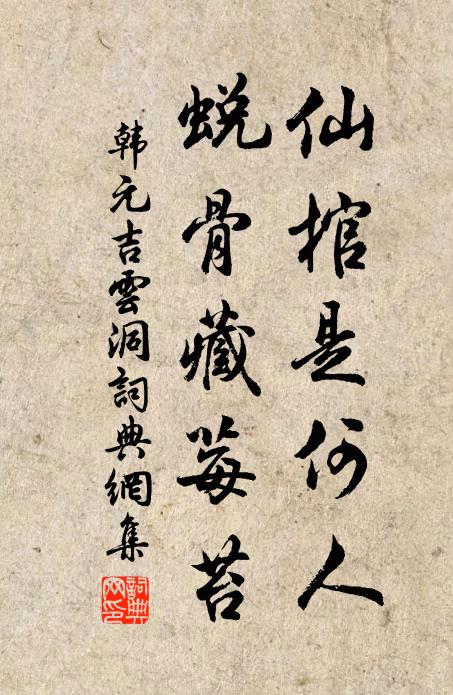 仙棺是何人
蜕骨藏莓苔
韩元吉雲洞詞典網集
詞典網印